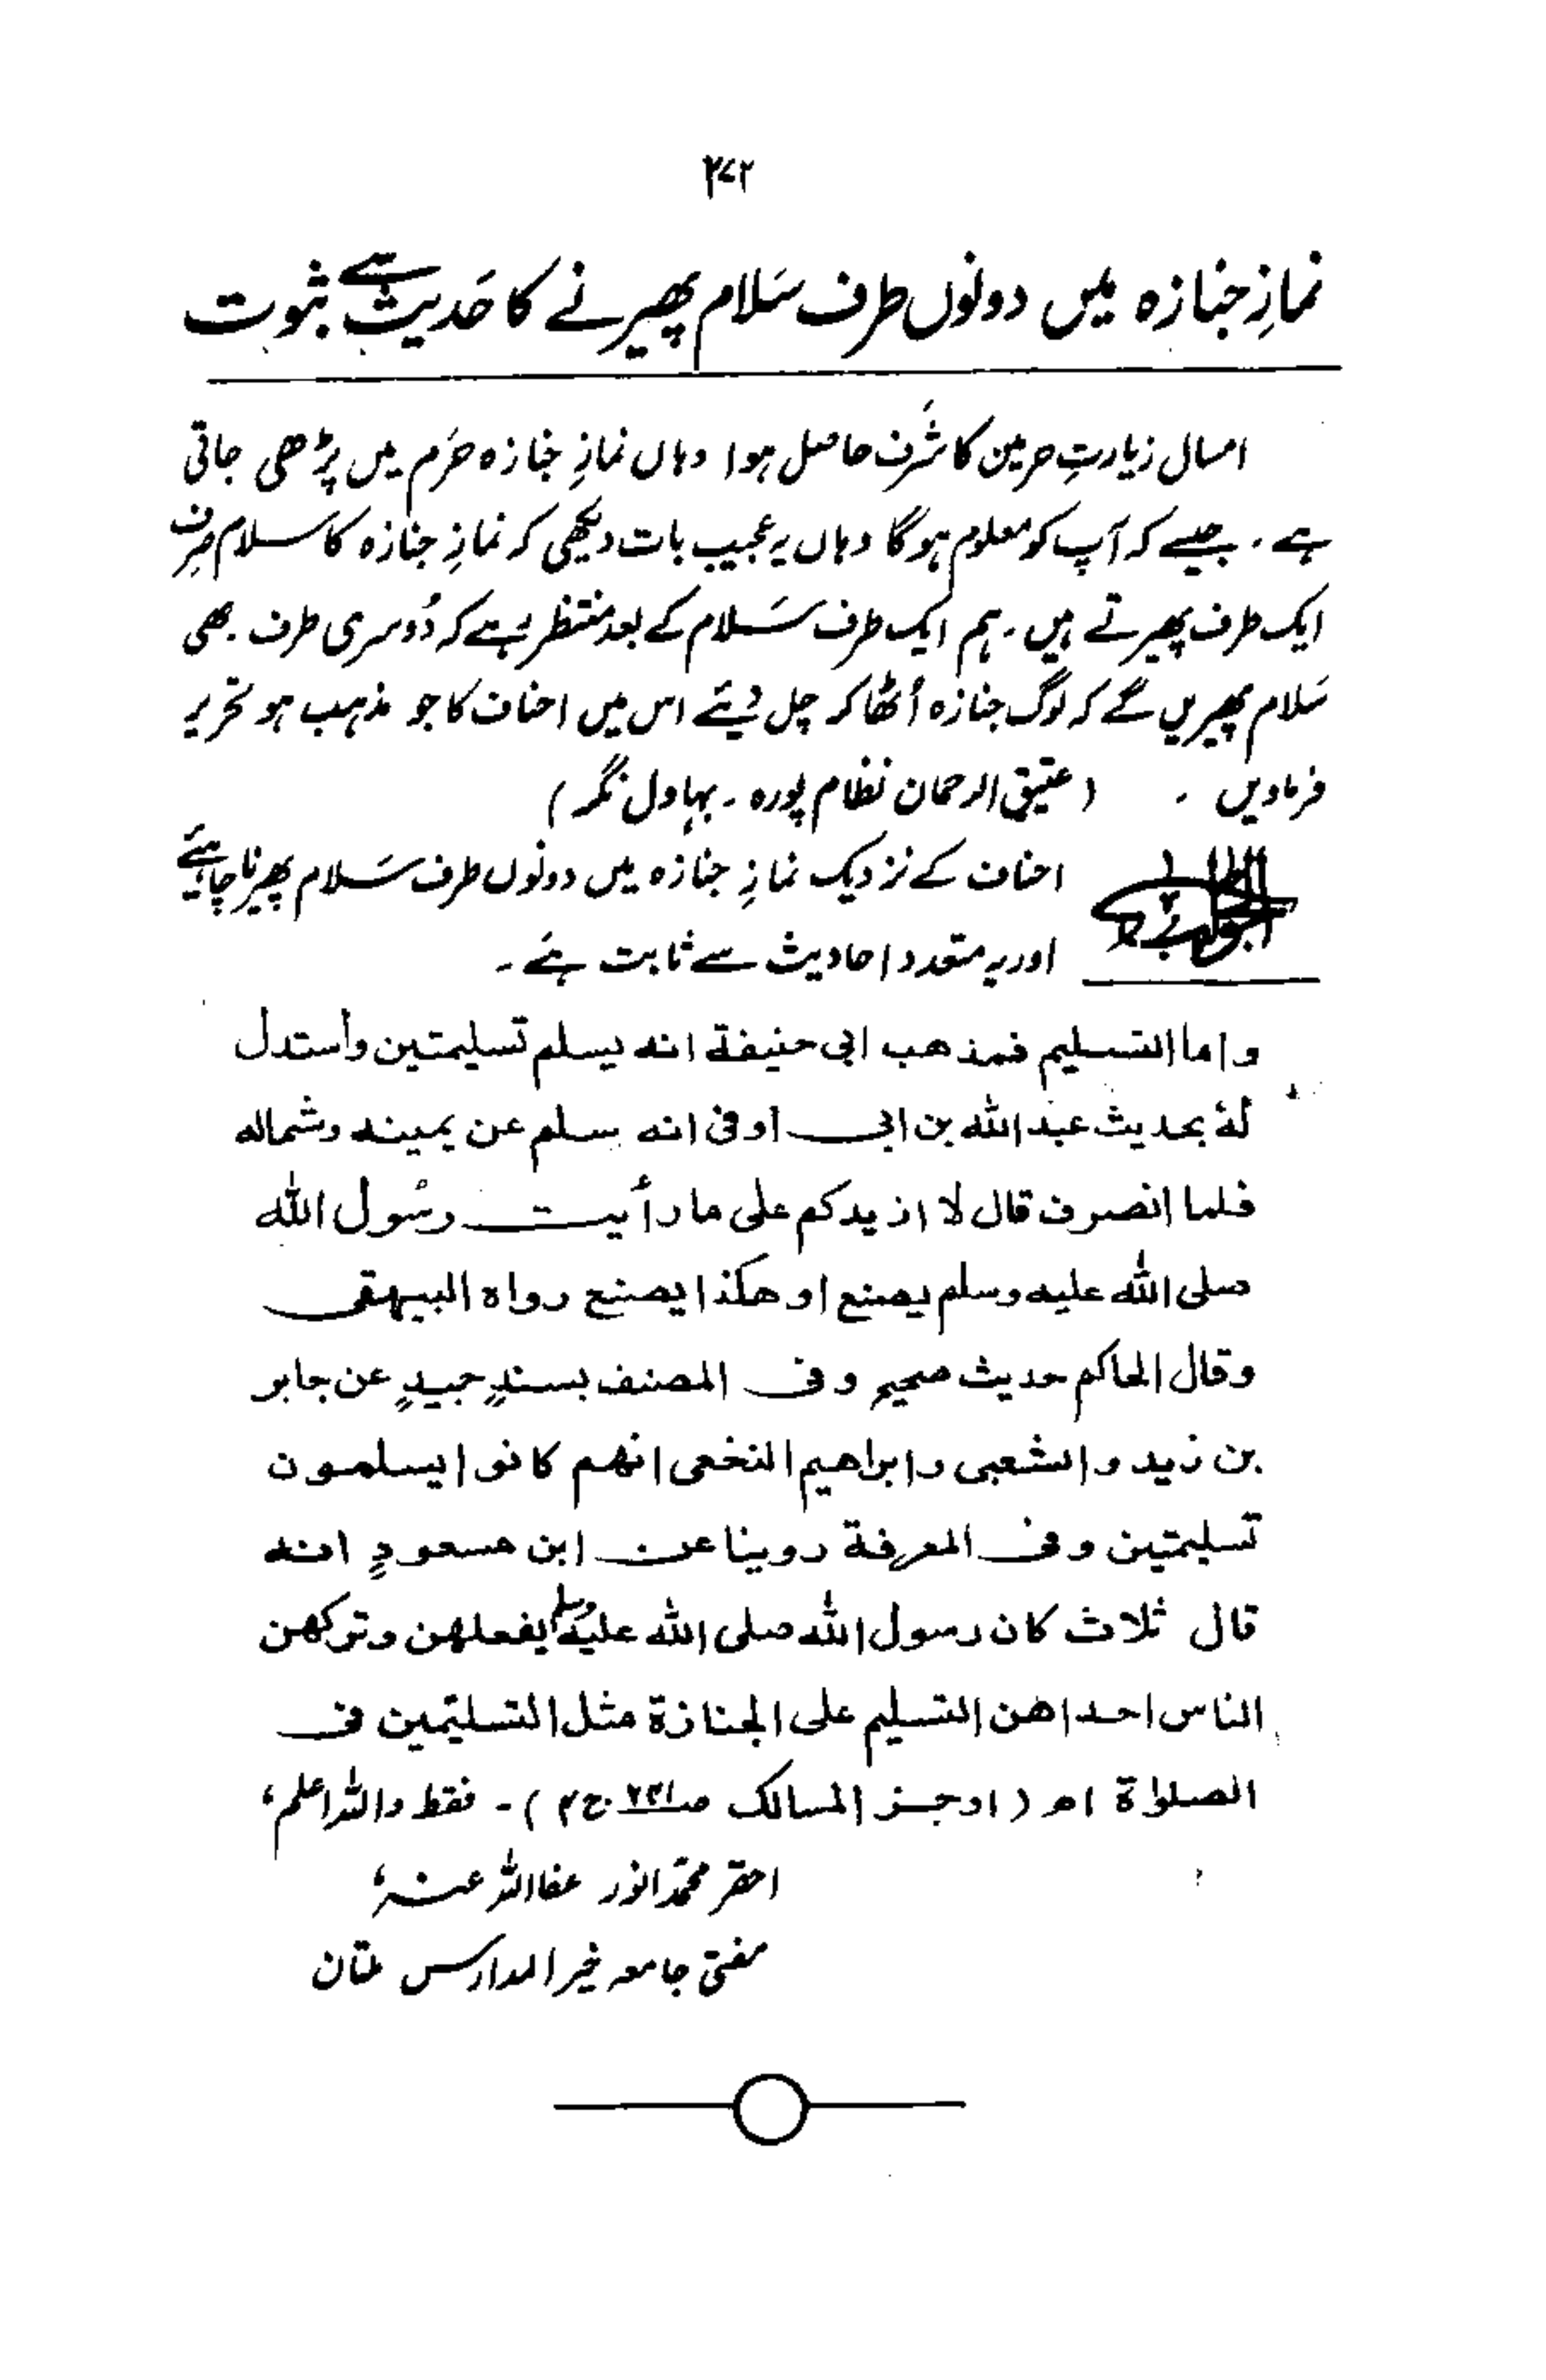 ۲۷۲
نمازِ جنازہ میں دونوں طرف سَلام پھیرنے کا حَدیث سے ثبوت
امسال زیارتِ حرمین کا شَرف حاصل ہوا وہاں نمازِ جنازہ حرَم میں پڑھی جاتی
ہے ۔ جیسے کہ آپ کو معلوم ہو گا وہاں یہ عجیب بات دیکھی کہ نمازِ جنازہ کا سلام صِرف
ایک طرف پھیرتے ہیں ۔ ہم ایک طرف سَلام کے بعد منتظر رہے کہ دُوسری طرف بھی
سَلام پھیریں گے کہ لوگ جنازہ اُٹھا کر چل دیئے اس میں احناف کا جو مذہب ہو تحریر
فرماویں ۔ (عتیق الرحمان نظام پورہ ۔ بہاول نگر)
الجواب احناف کے نزدیک نمازِ جنازہ میں دونوں طرف سَلام پھیرنا چاہیئے
اور یہ متعدد احادیث سے ثابت ہے ۔
واما التسليم فمذهب ابى حنيفة انه يسلم تسليمتين وأستدل
لهٗ بحديث عبد الله بن ابى اوفى انه سلم عن يمينه وشماله
فلما انصرف قال لا ازيدكم على ما رأيت رسُول الله
صلى الله عليه وسلم يصنع او هكذا يصنع رواه البيهقى
وقال الحاكم حديث صحيح وفى المصنف بسندٍ جيدٍ عن جابر
بن زيد والشعبى وابراهيم النخعى انهم كانوا يسلمون
تسليمتين وفى المعرفة روينا عن ابن مسعودٍ انه
قال ثلاث كان رسول الله صلى الله عليه وسلم يفعلهن وتركهن
الناس احداهن التسليم على الجنازة مثل التسليمتين فى
الصلوٰة اھ (اوجز المسالک ج ۲) ۔ فقط واللہ اعلم،
احقر محمّد انور عفا اللہ عنہٗ
مفتی جامعہ خیر المدارس ملتان